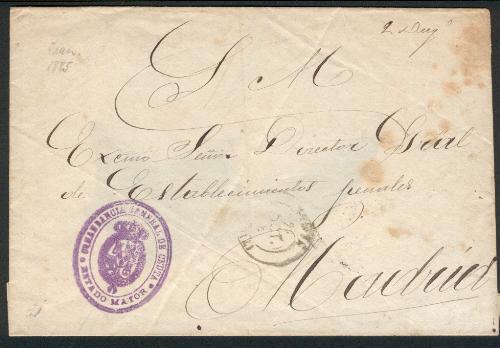 1885
S. M.
Excmo Señor Director Gral
de Establecimientos penales
Madrid
COMANDANCIA GENERAL DE CEUTA
ESTADO MAYOR